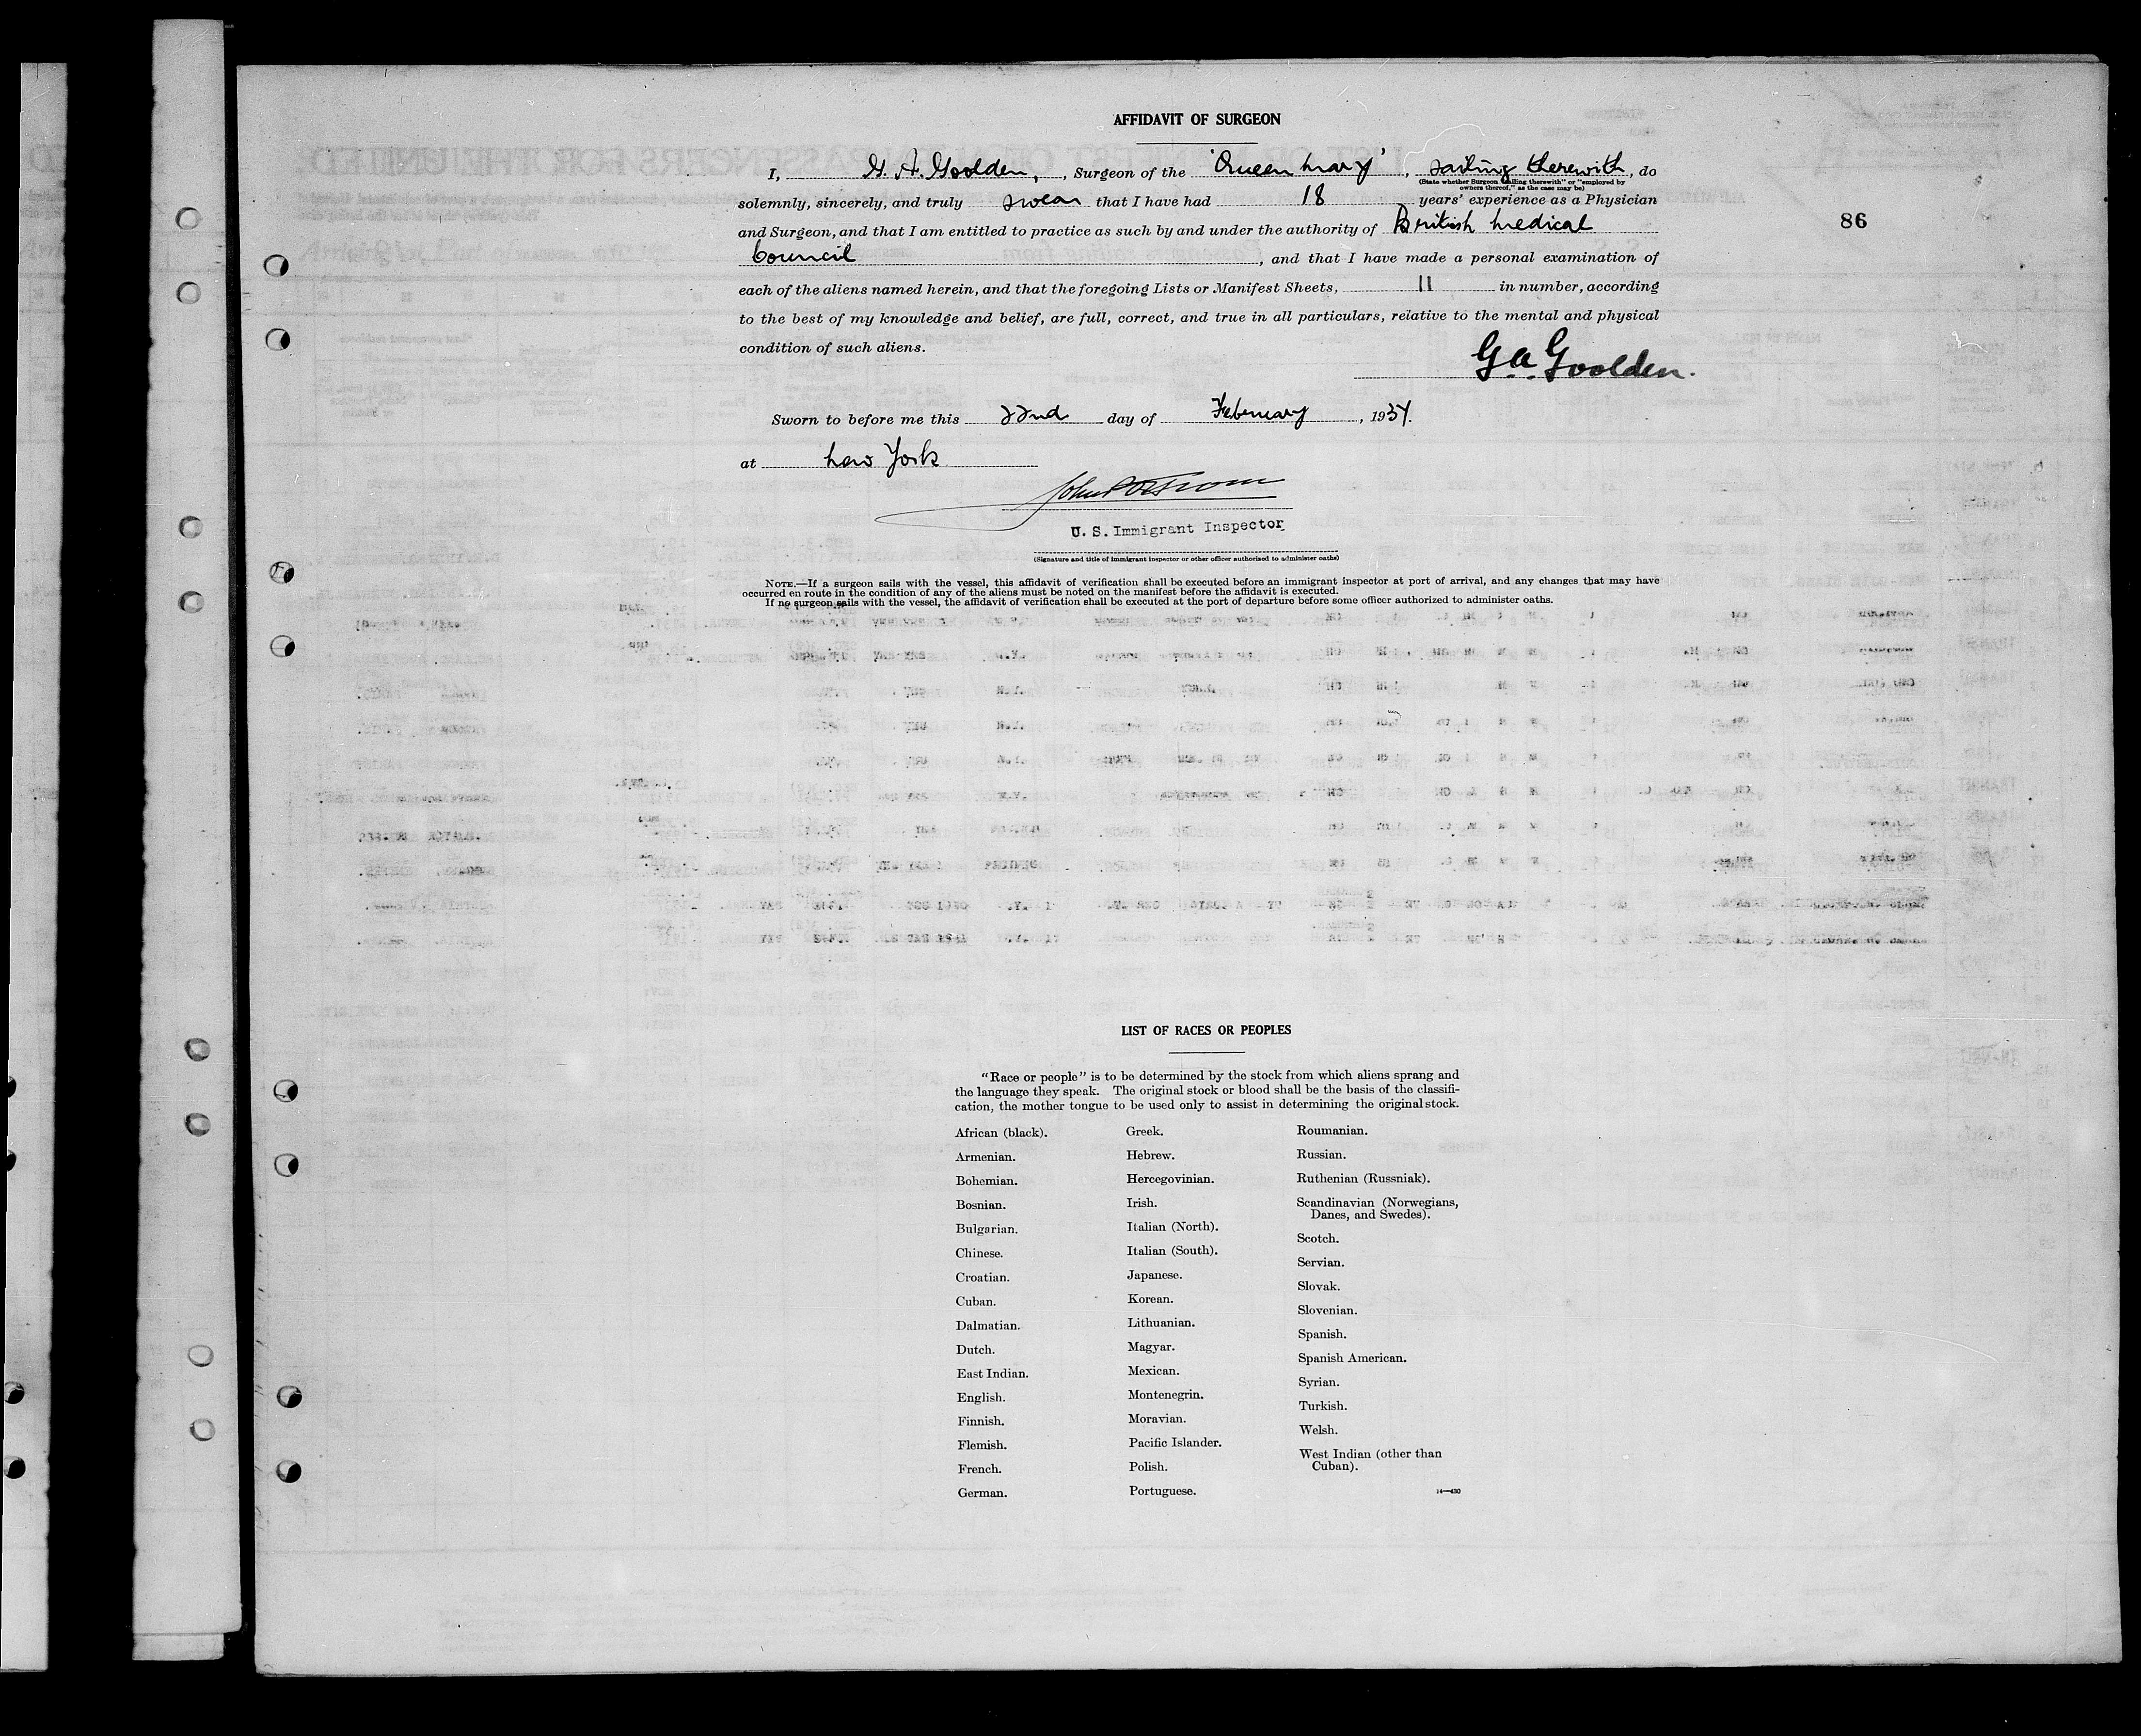 AFFIDAVIT OF SURGEON
I, G. A. Goolden, , Surgeon of the 'Queen Mary' , sailing therewith, do
(State whether Surgeon "sailing therewith" or "employed by
owners thereof," as the case may be)
solemnly, sincerely, and truly swear that I have had 18 years' experience as a Physician
and Surgeon, and that I am entitled to practice as such by and under the authority of British Medical
86
Council , and that I have made a personal examination of
each of the aliens named herein, and that the foregoing Lists or Manifest Sheets, 11 in number, according
to the best of my knowledge and belief, are full, correct, and true in all particulars, relative to the mental and physical
condition of such aliens.
G A Goolden.
Sworn to before me this 22nd day of February , 1937.
at New York
U. S. Immigrant Inspector
(Signature and title of immigrant inspector or other officer authorized to administer oaths)
NOTE.—If a surgeon sails with the vessel, this affidavit of verification shall be executed before an immigrant inspector at port of arrival, and any changes that may have
occurred en route in the condition of any of the aliens must be noted on the manifest before the affidavit is executed.
If no surgeon sails with the vessel, the affidavit of verification shall be executed at the port of departure before some officer authorized to administer oaths.
LIST OF RACES OR PEOPLES
"Race or people" is to be determined by the stock from which aliens sprang and
the language they speak. The original stock or blood shall be the basis of the classifi-
cation, the mother tongue to be used only to assist in determining the original stock.
African (black).
Armenian.
Bohemian.
Bosnian.
Bulgarian.
Chinese.
Croatian.
Cuban.
Dalmatian.
Dutch.
East Indian.
English.
Finnish.
Flemish.
French.
German.
Greek.
Hebrew.
Hercegovinian.
Irish.
Italian (North).
Italian (South).
Japanese.
Korean.
Lithuanian.
Magyar.
Mexican.
Montenegrin.
Moravian.
Pacific Islander.
Polish.
Portuguese.
Roumanian.
Russian.
Ruthenian (Russniak).
Scandinavian (Norwegians,
Danes, and Swedes).
Scotch.
Servian.
Slovak.
Slovenian.
Spanish.
Spanish American.
Syrian.
Turkish.
Welsh.
West Indian (other than
Cuban).
14—430